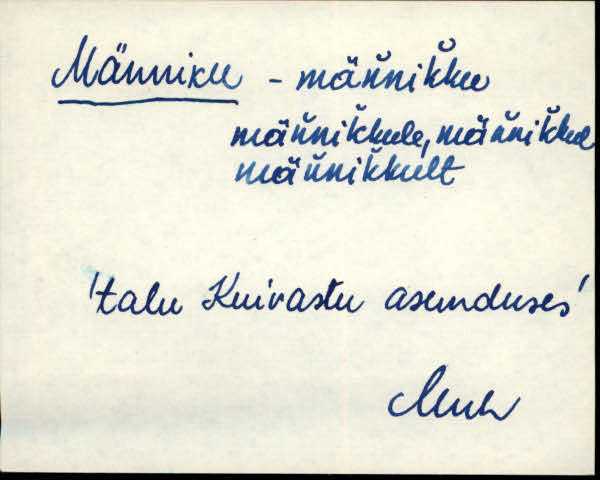 Männiku - män̆nik̆ku
män̆nik̆kule, män̆nik̆kul
män̆nik̆kult
'talu Kuivastu asemduses'
Muh